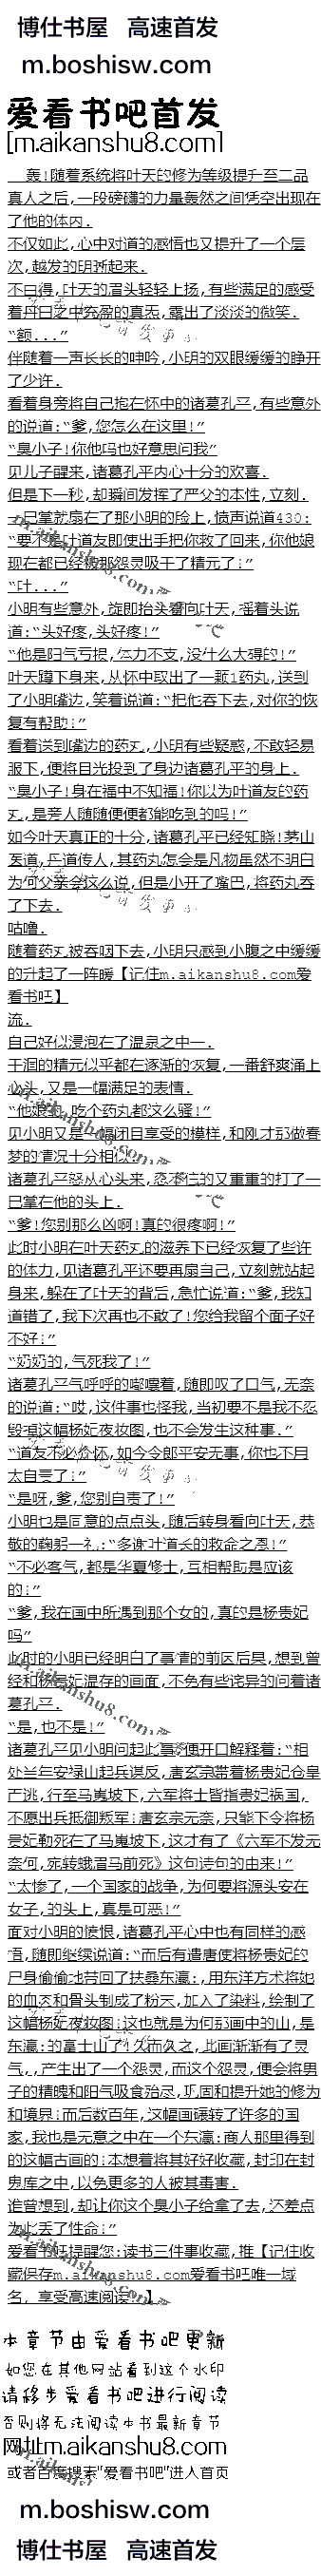 博仕书屋 高速首发
m.boshisw.com
爱看书吧首发
[m.aikanshu8.com]
轰!随着系统将叶天的修为等级提升至二品
真人之后,一段磅礴的力量轰然之间凭空出现在
了他的体内.
不仅如此,心中对道的感悟也又提升了一个层
次,越发的明晰起来.
不由得,叶天的眉头轻轻上扬,有些满足的感受
着丹田之中充盈的真炁,露出了淡淡的微笑.
“额...”
伴随着一声长长的呻吟,小明的双眼缓缓的睁开
了少许.
看着身旁将自己抱在怀中的诸葛孔平,有些意外
的说道:“爹,您怎么在这里!”
“臭小子!你他吗也好意思问我”
见儿子醒来,诸葛孔平内心十分的欢喜.
但是下一秒,却瞬间发挥了严父的本性,立刻.
一巴掌就扇在了那小明的脸上,愤声说道430:
“要不是叶道友即使出手把你救了回来,你他娘
现在都已经被那怨灵吸干了精元了!”
“叶...”
小明有些意外,旋即抬头看向叶天,摇着头说
道:“头好疼,头好疼!”
“他是阳气亏损,体力不支,没什么大碍的!”
叶天蹲下身来,从怀中取出了一颗1药丸,送到
了小明嘴边,笑着说道:“把他吞下去,对你的恢
复有帮助!”
看着送到嘴边的药丸,小明有些疑惑,不敢轻易
服下,便将目光投到了身边诸葛孔平的身上.
“臭小子!身在福中不知福!你以为叶道友的药
丸,是旁人随随便便都能吃到的吗!”
如今叶天真正的十分,诸葛孔平已经知晓!茅山
医道,丹道传人,其药丸怎会是凡物虽然不明白
为何父亲会这么说,但是小开了嘴巴,将药丸吞
了下去.
咕噜.
随着药丸被吞咽下去,小明只感到小腹之中缓缓
的升起了一阵暖【记住m.aikanshu8.com爱
看书吧】
流.
自己好似浸泡在了温泉之中一.
干涸的精元似乎都在逐渐的恢复,一番舒爽涌上
心头,又是一幅满足的表情.
“他娘的,吃个药丸都这么骚!”
见小明又是一幅闭目享受的模样,和刚才那做春
梦的情况十分相似.
诸葛孔平怒从心头来,忍不住的又重重的打了一
巴掌在他的头上.
“爹!您别那么凶啊!真的很疼啊!”
此时小明在叶天药丸的滋养下已经恢复了些许
的体力,见诸葛孔平还要再扇自己,立刻就站起
身来,躲在了叶天的背后,急忙说道:“爹,我知
道错了,我下次再也不敢了!您给我留个面子好
不好!”
“奶奶的,气死我了!”
诸葛孔平气呼呼的嘟囔着,随即叹了口气,无奈
的说道:“哎,这件事也怪我,当初要不是我不忍
毁掉这幅杨妃夜妆图,也不会发生这种事.”
“道友不必介怀,如今令郎平安无事,你也不用
太自责了!”
“是呀,爹,您别自责了!”
小明也是同意的点点头,随后转身看向叶天,恭
敬的鞠躬一礼:“多谢叶道长的救命之恩!”
“不必客气,都是华夏修士,互相帮助是应该
的!”
“爹,我在画中所遇到那个女的,真的是杨贵妃
吗”
此时的小明已经明白了事情的前因后果,想到曾
经和杨贵妃温存的画面,不免有些诧异的问着诸
葛孔平.
“是,也不是!”
诸葛孔平见小明问起此事,便开口解释着:“相
处当年安禄山起兵谋反,唐玄宗带着杨贵妃仓皇
而逃,行至马嵬坡下,六军将士皆指贵妃祸国,
不愿出兵抵御叛军!唐玄宗无奈,只能下令将杨
贵妃勒死在了马嵬坡下,这才有了《六军不发无
奈何,宛转蛾眉马前死》这句诗句的由来!”
“太惨了,一个国家的战争,为何要将源头安在
女子,的头上,真是可恶!”
面对小明的愤恨,诸葛孔平心中也有同样的感
悟,随即继续说道:“而后有遣唐使将杨贵妃的
尸身偷偷地带回了扶桑东瀛:,用东洋方术将她
的血液和骨头制成了粉末,加入了染料,绘制了
这幅杨妃夜妆图!这也就是为何那画中的山,是
东瀛:的富士山了!久而久之,此画渐渐有了灵
气,,产生出了一个怨灵,而这个怨灵,便会将男
子的精魄和阳气吸食殆尽,巩固和提升她的修为
和境界!而后数百年,这幅画碾转了许多的国
家,我也是无意之中在一个东瀛:商人那里得到
的这幅古画的!本想着将其好好收藏,封印在封
鬼库之中,以免更多的人被其毒害.
谁曾想到,却让你这个臭小子给拿了去,还差点
为此丢了性命!”
爱看书吧提醒您:读书三件事收藏,推【记住收
藏保存m.aikanshu8.com爱看书吧唯一域
名, 享受高速阅读 】
本章节由爱看书吧更新
如您在其他网站看到这个水印
请移步爱看书吧进行阅读
否则将无法阅读本书最新章节
网址m.aikanshu8.com
或者百度搜索"爱看书吧"进入首页
m.boshisw.com
博仕书屋 高速首发